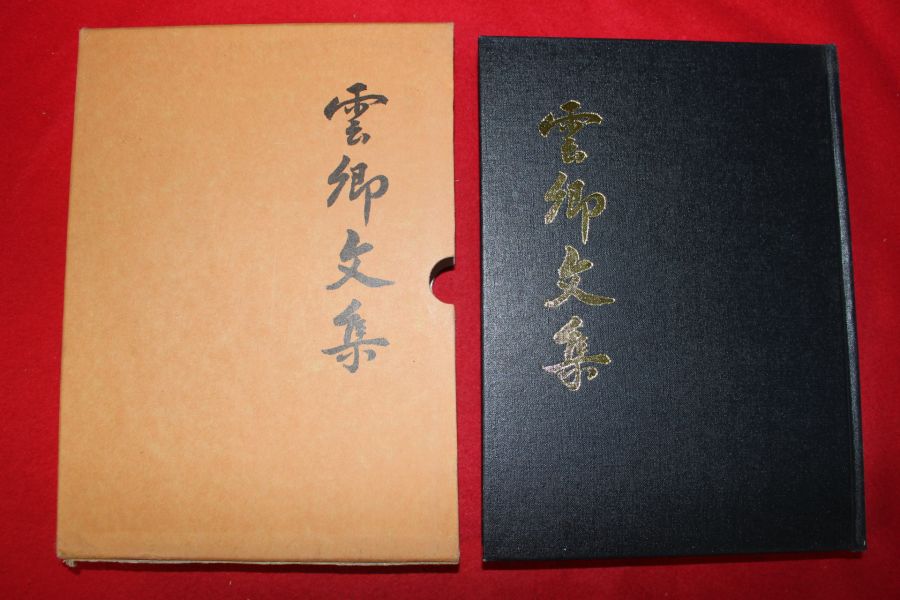 雲卿文集
雲卿文集